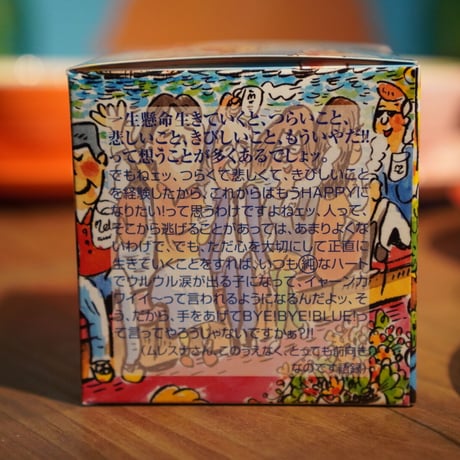 一生懸命生きていくと、つらいこと、
悲しいこと、きびしいこと、もういやだ!!
って想うことが多くあるでしょッ。
でもねェッ、つらくて悲しくて、きびしいこと
を経験したから、これからはもうHAPPYに
なりたい!って思うわけですよねェッ、人って、
そこから逃げることがあっては、あまりよくな
いわけで、でも、ただ心を大切にして正直に
生きていくことをすれば、いつも純なハート
でウルウル涙が出る子になって、イヤ〜ンカ
ワイイ〜って言われるようになるんだよッ、そ
う、だから、手をあげてBYE!BYE!BLUE!っ
て言ってやろうじゃないですかぁ?!!
(ムレスナさん、このうえなく、とっても前向き
なのです語録)